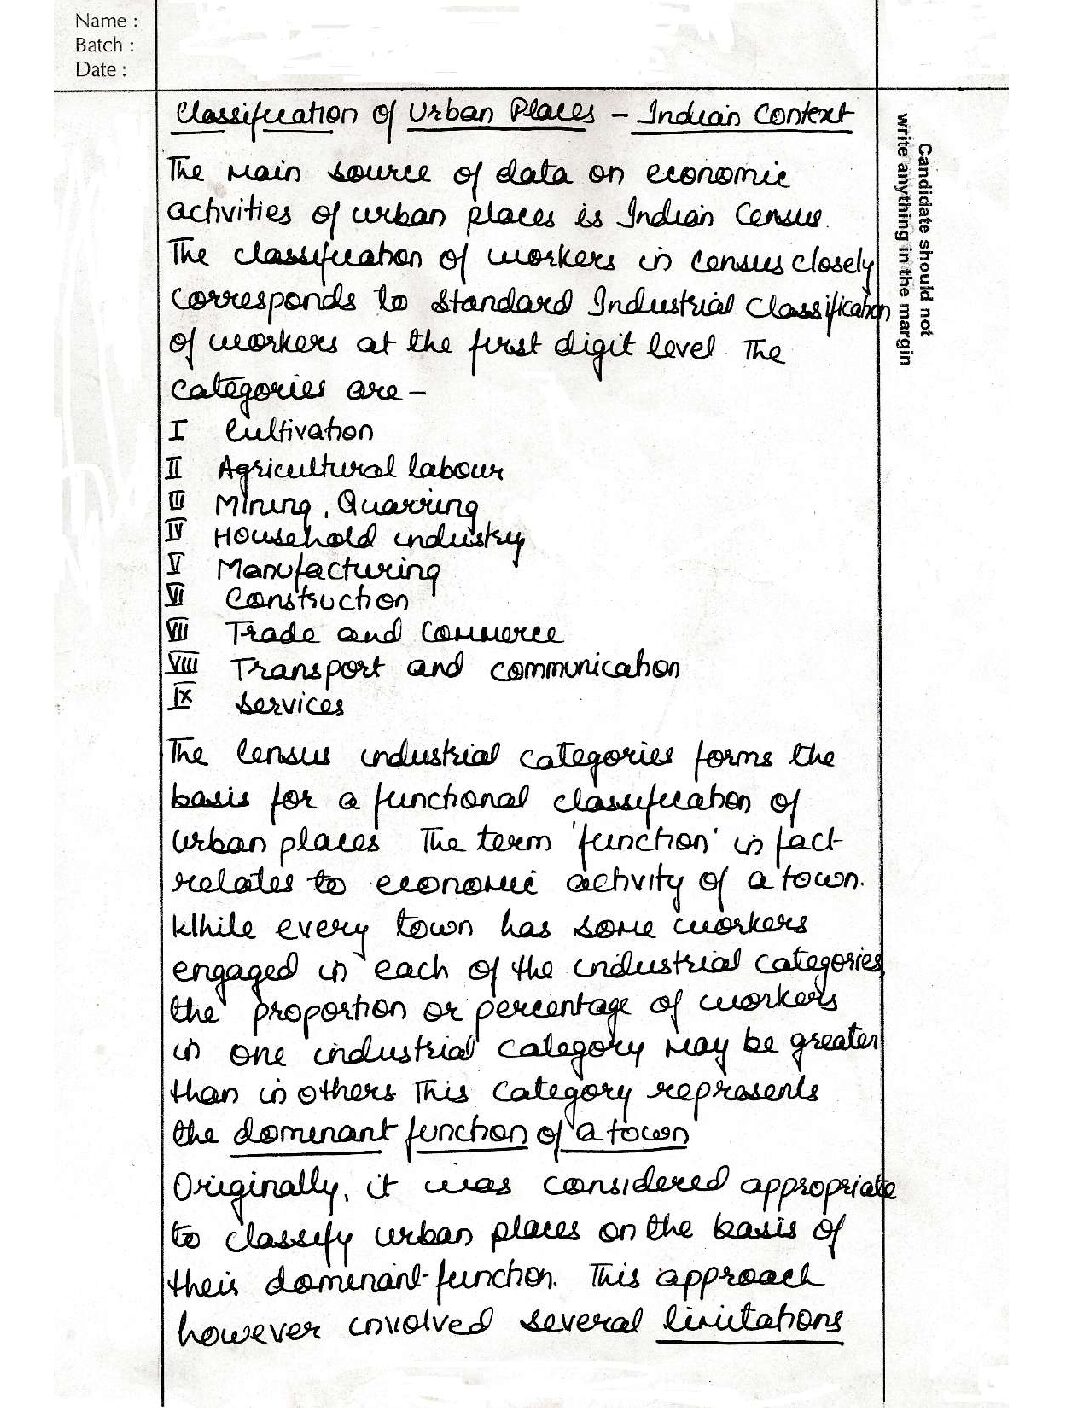 Name :
Batch :
Date :
Candidate should not
write anything in the margin
Classification of Urban Places – Indian Context
The main source of data on economic
activities of urban places is Indian Census.
The classification of workers in census closely
corresponds to Standard Industrial Classification
of workers at the first digit level The
categories are –
I Cultivation
II Agricultural labour
III Mining, Quarring
IV Household industry
V Manufacturing
VI Construction
VII Trade and Commerce
VIII Transport and communication
IX Services
The Census industrial categories forms the
basis for a functional classification of
urban places The term 'function' is in fact
relates to economic activity of a town.
While every town has some workers
engaged in each of the industrial categories,
the proportion or percentage of workers
in one industrial category may be greater
than in others This category represents
the dominant function of a town
Originally, it was considered appropriate
to classify urban places on the basis of
their dominant function. This approach
however involved several limitations